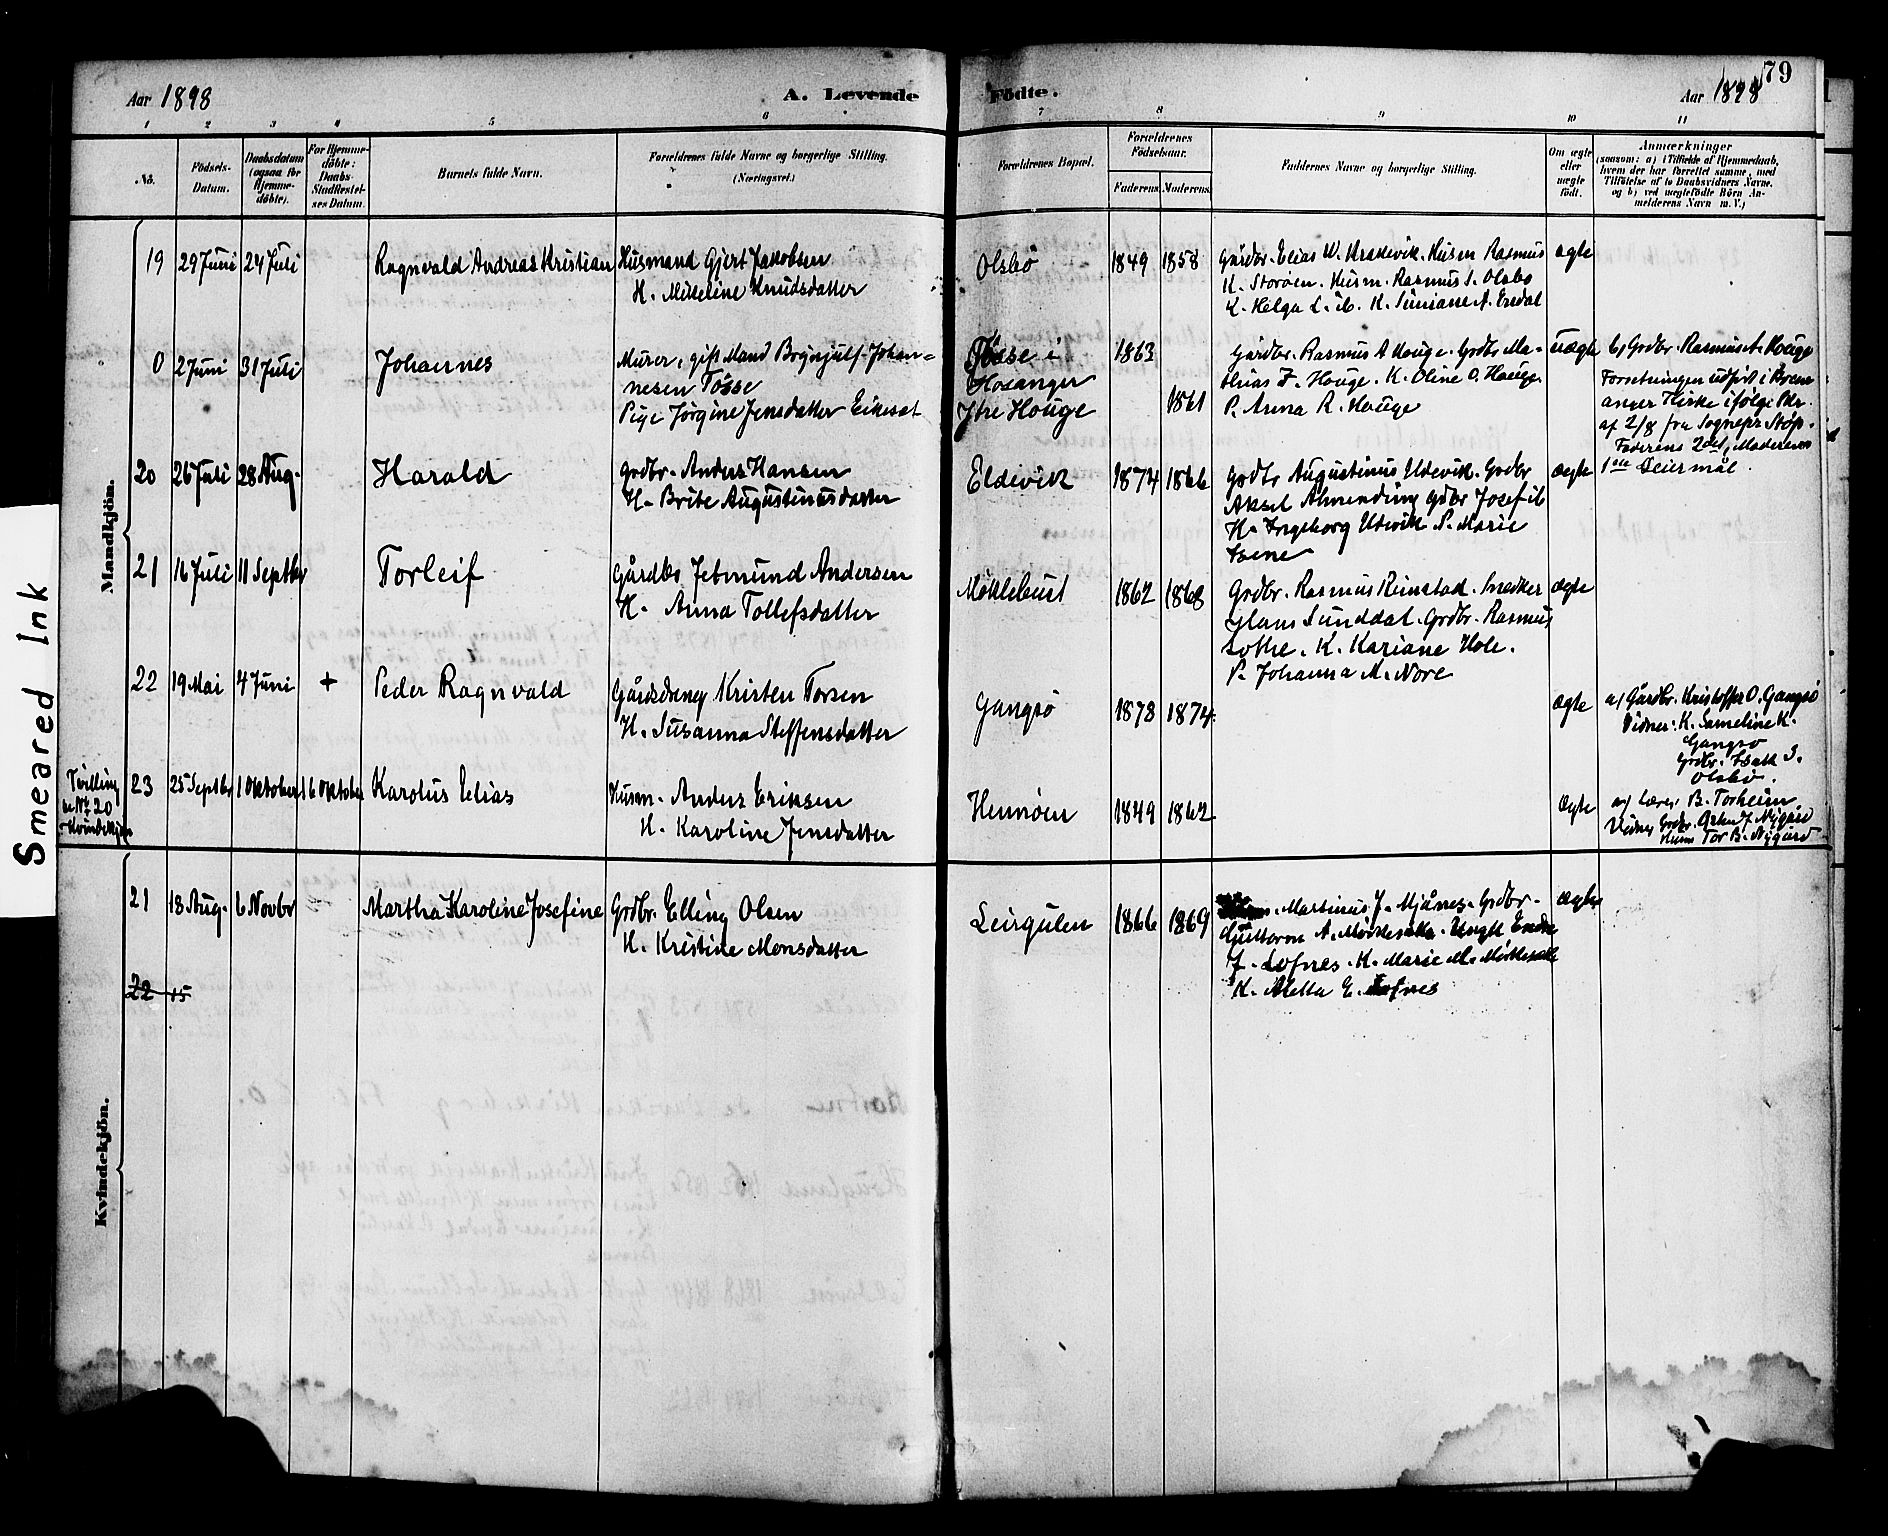 79
Aar 1898
A. Levende
Födte.
Aar 1898
1 2 3 4 5 6 7 8 9 10 11
No.
Födsels-
Datum.
Daabsdatum
(ogsaa for
Hjemme-
döbte).
For Hjemme-
döbte:
Daabs-
Stadfæstel-
ses Datum.
Barnets fulde Navn.
Forældrenes fulde Navne og borgerlige Stilling.
(Næringsvei.)
Forældrenes Bopæl.
Forældrenes
Födselsaar.
Faderens. Moderens.
Faddernes Navne og borgerlige Stilling.
Om ægte
eller
uægte
födt.
Anmærkninger
(saasom: a) i Tilfælde af Hjemmedaab,
hvem der har forrettet samme, med
Tilföielse af to Daabsvidners Navne.
og b) ved uægtefödte Börn An-
melderens Navn m. V.)
Mandkjön.
19 29 Juni 24 Juli Ragnvald Andreas Kristian Husmand Gjert Jakobsen
H. Mikkeline Knudsdatter
Olsbø 1849 1858
Gårdbr. Elias W. Krakevik. Husm Rasmus
K. Storøen. Husm. Rasmus S. Olsbø
K. Helga L. ib. K. Simiane A. Endal
ægte
0 2 Juni 31 Juli Johannes
Murer, gift Mand Brynjulf Johan-
nesen Tøsse
Pige Jørgine Jensdatter Eikeset
Tøsse i
Hosanger
Ytre Houge
1863
1861
Gårdbr. Rasmus A Houge. Grdbr Ma-
thias J. Houge. K. Oline O. Houge
P. Anna R. Houge
uægte
b, Grdbr. Rasmus A. Houge
Forretningen udført i Brem
anger Kirke ifølge Skr.
af 2/8 fra Sognepr Støp.
Faderens 2det, Moderens
1ste Leiermål.
20 26 Juli 28 Aug. Harald
Grdbr. Anders Hansen
H. Brite Augustinusdatter
Eldevik 1874 1866
Grdbr Augustinus Udevik. Grdbr
Aksel Almending Gdbr Josef ib
H. Ingeborg Udevik P. Marie
Isene
ægte
21 16 Juli 11 Septbr Torleif
Gårdbr Jetmund Andersen
H. Anna Tollefsdatter
Møklebust 1862 1868
Grdbr. Rasmus Rimstad. Snedker
Hans Sunddal. Grdbr. Rasmus
Lothe. K. Kariane Hole.
P. Johanna M. Nore
ægte
22 19 Mai 4 Juni + Peder Ragnvald
Gårdsdreng Kristen Torsen
H. Susanna Steffensdatter
Gangsø 1873 1874
ægte
a/ Gårdbr. Kristoffer O. Gangsø
Vidner: K. Sameline K.
Gangsø
Grdbr. Isak S.
Olsbø.
Tvilling
m No 20
Kvindekjøn
23 25 Septbr 1 Oktober 16 Oktober Karolus Elias
Husm. Anders Eriksen
H. Karoline Jensdatter
Hennøen 1849 1862
ægte
a/ Lærer B. Torheim
Vidner Grdbr. J. Nygård
Husm Tor B. Nygård
Kvindekjön.
21 18 Aug. 6 Novbr Martha Karoline Josefine
Grdbr. Elling Olsen
H. Kristine Monsdatter
Leirgulen 1866 1869
Martinus J. Mjånes. Grdbr.
Guttorm A. Møklesøk. Ungk Endre
J. Lofnes. K. Marie M. Møklesøk
K. Aletta E. Lofnes
ægte
22 15
Smeared Ink